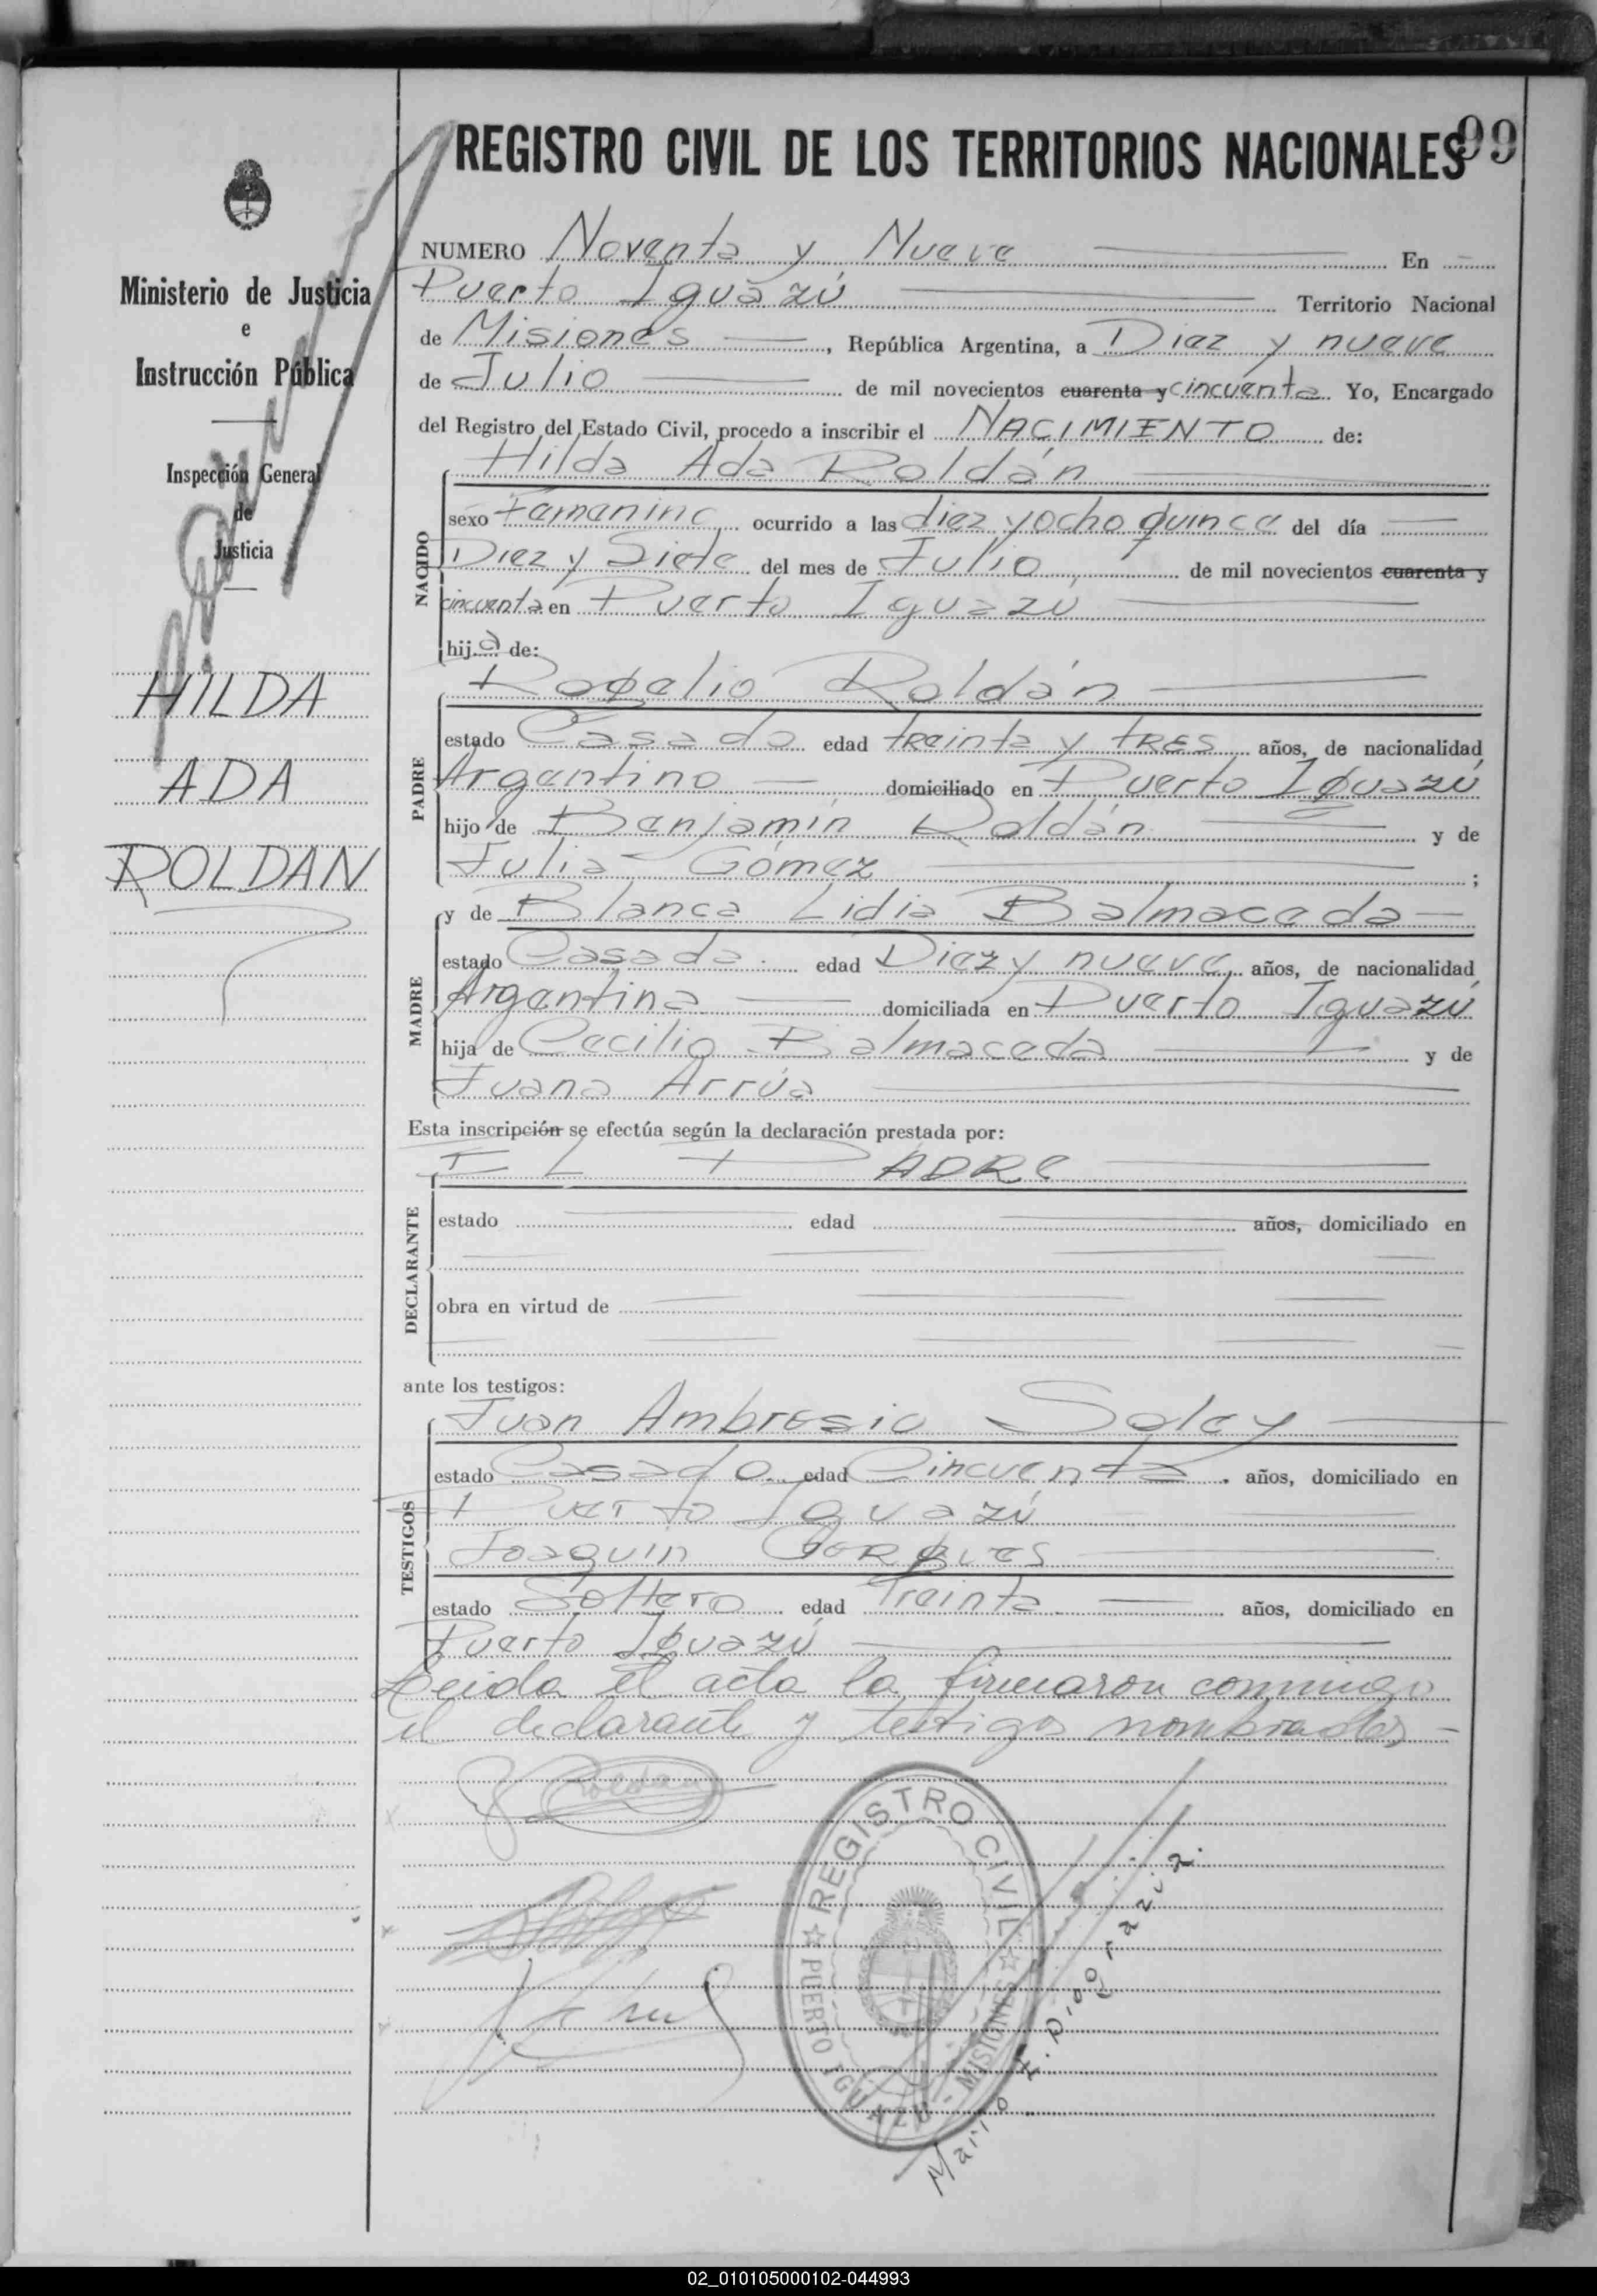 REGISTRO CIVIL DE LOS TERRITORIOS NACIONALES 99
Ministerio de Justicia
e
Instrucción Pública
Inspección General
de
Justicia
HILDA
ADA
ROLDAN
NUMERO Noventa y Nueve En
Puerto Iguazú Territorio Nacional
de Misiones, República Argentina, a Diez y nueve
de Julio de mil novecientos cuarenta y cincuenta. Yo, Encargado
del Registro del Estado Civil, procedo a inscribir el NACIMIENTO de:
Hilda Ada Roldán
NACIDO
sexo Femenino ocurrido a las diez y ocho quince del día
Diez y Siete del mes de Julio de mil novecientos cuarenta y
cincuenta en Puerto Iguazú
hija de:
Rogelio Roldán
PADRE
estado Casado edad treinta y tres años, de nacionalidad
Argentino domiciliado en Puerto Iguazú
hijo de Benjamín Roldán y de
Julia Gómez ;
y de Blanca Lidia Balmaceda
MADRE
estado Casada edad Diez y nueve, años, de nacionalidad
Argentina domiciliada en Puerto Iguazú
hija de Cecilio Balmaceda y de
Juana Arrúa
Esta inscripción se efectúa según la declaración prestada por:
EL PADRE
DECLARANTE
estado edad años, domiciliado en
obra en virtud de
ante los testigos:
Juan Ambrosio Soley
TESTIGOS
estado Casado edad Cincuenta años, domiciliado en
Puerto Iguazú
Joaquin
estado Soltero edad Treinta años, domiciliado en
Puerto Iguazú
Leida el acta la firmaron conmigo
el declarante y testigos nombrados
Roldan
REGISTRO CIVIL
PUERTO IGUAZU - MISIONES
Mario
02_010105000102-044993